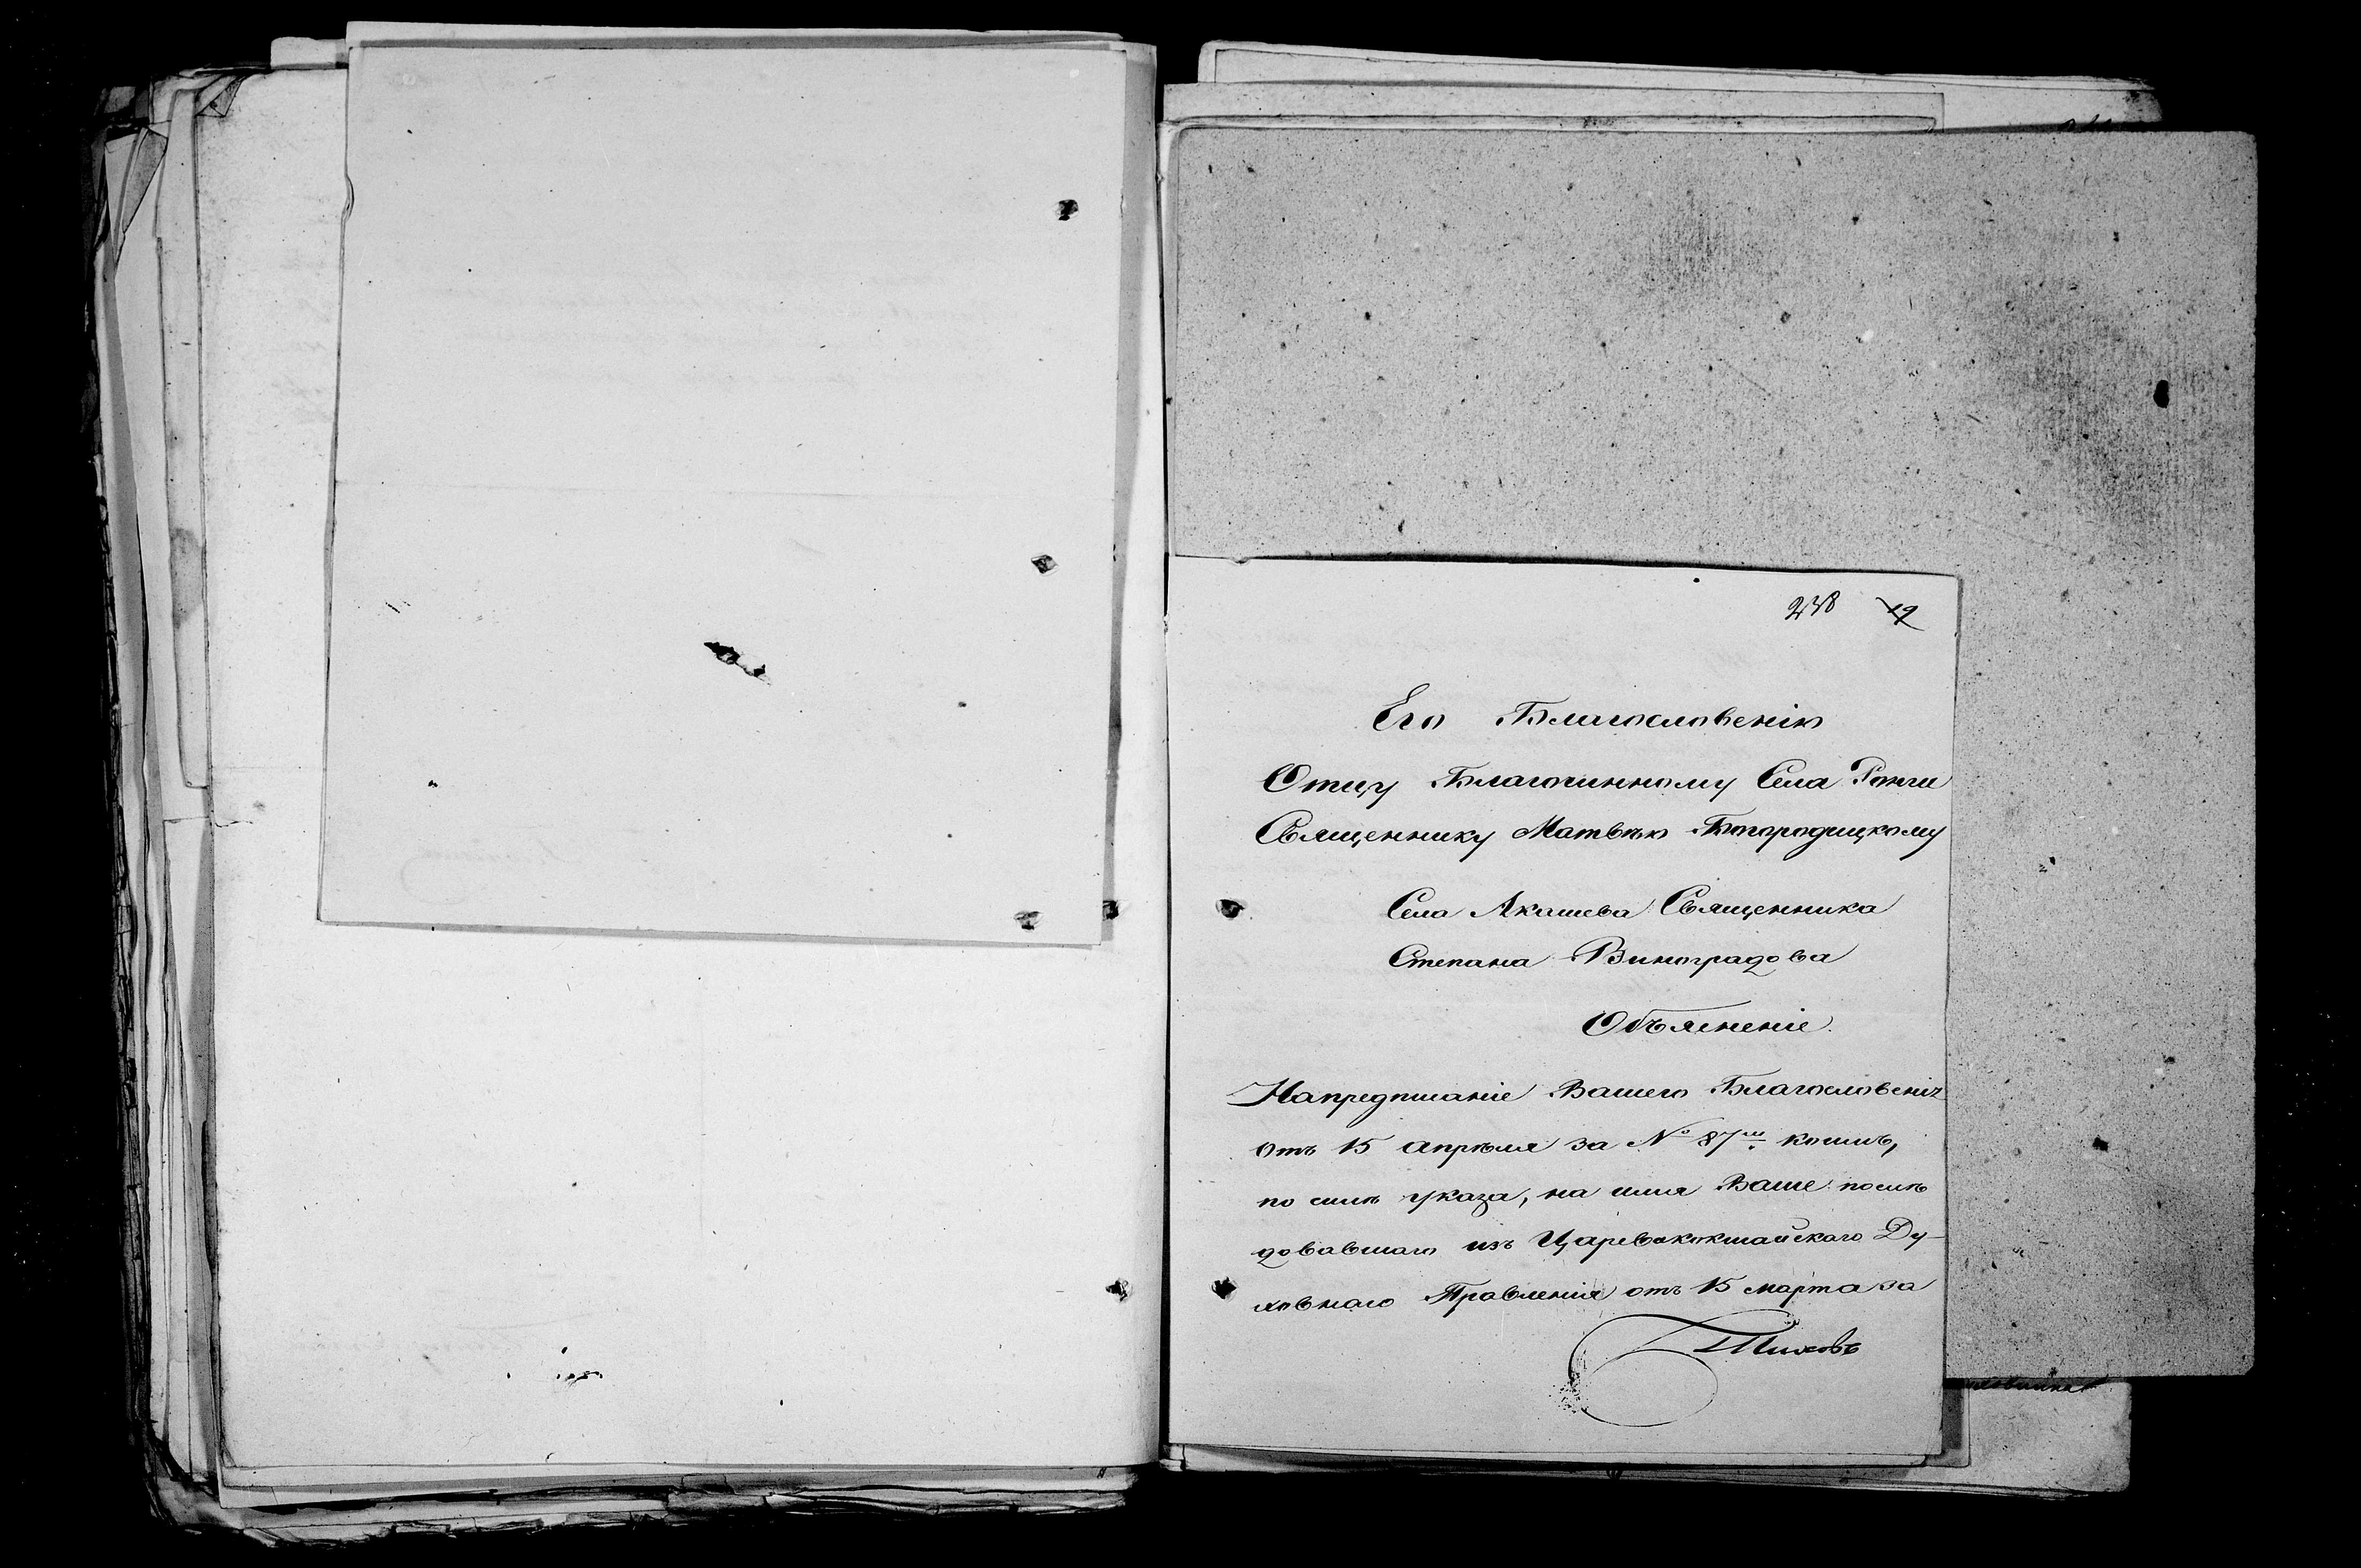 238 12
Его Благословенію
Отцу Благочинному Села Ронги
Священнику Матвѣю Богородицкому
Села Акашева Священника
Степана Виноградова
Объясненіе.
Напредписаніе Вашего Благословенія
отъ 15 апрѣля за № 87м. коимъ,
по силѣ указа, на имя Ваше послѣ
довавшаго изъ Царевококшайскаго Ду-
ховнаго Правленія отъ 15 марта за